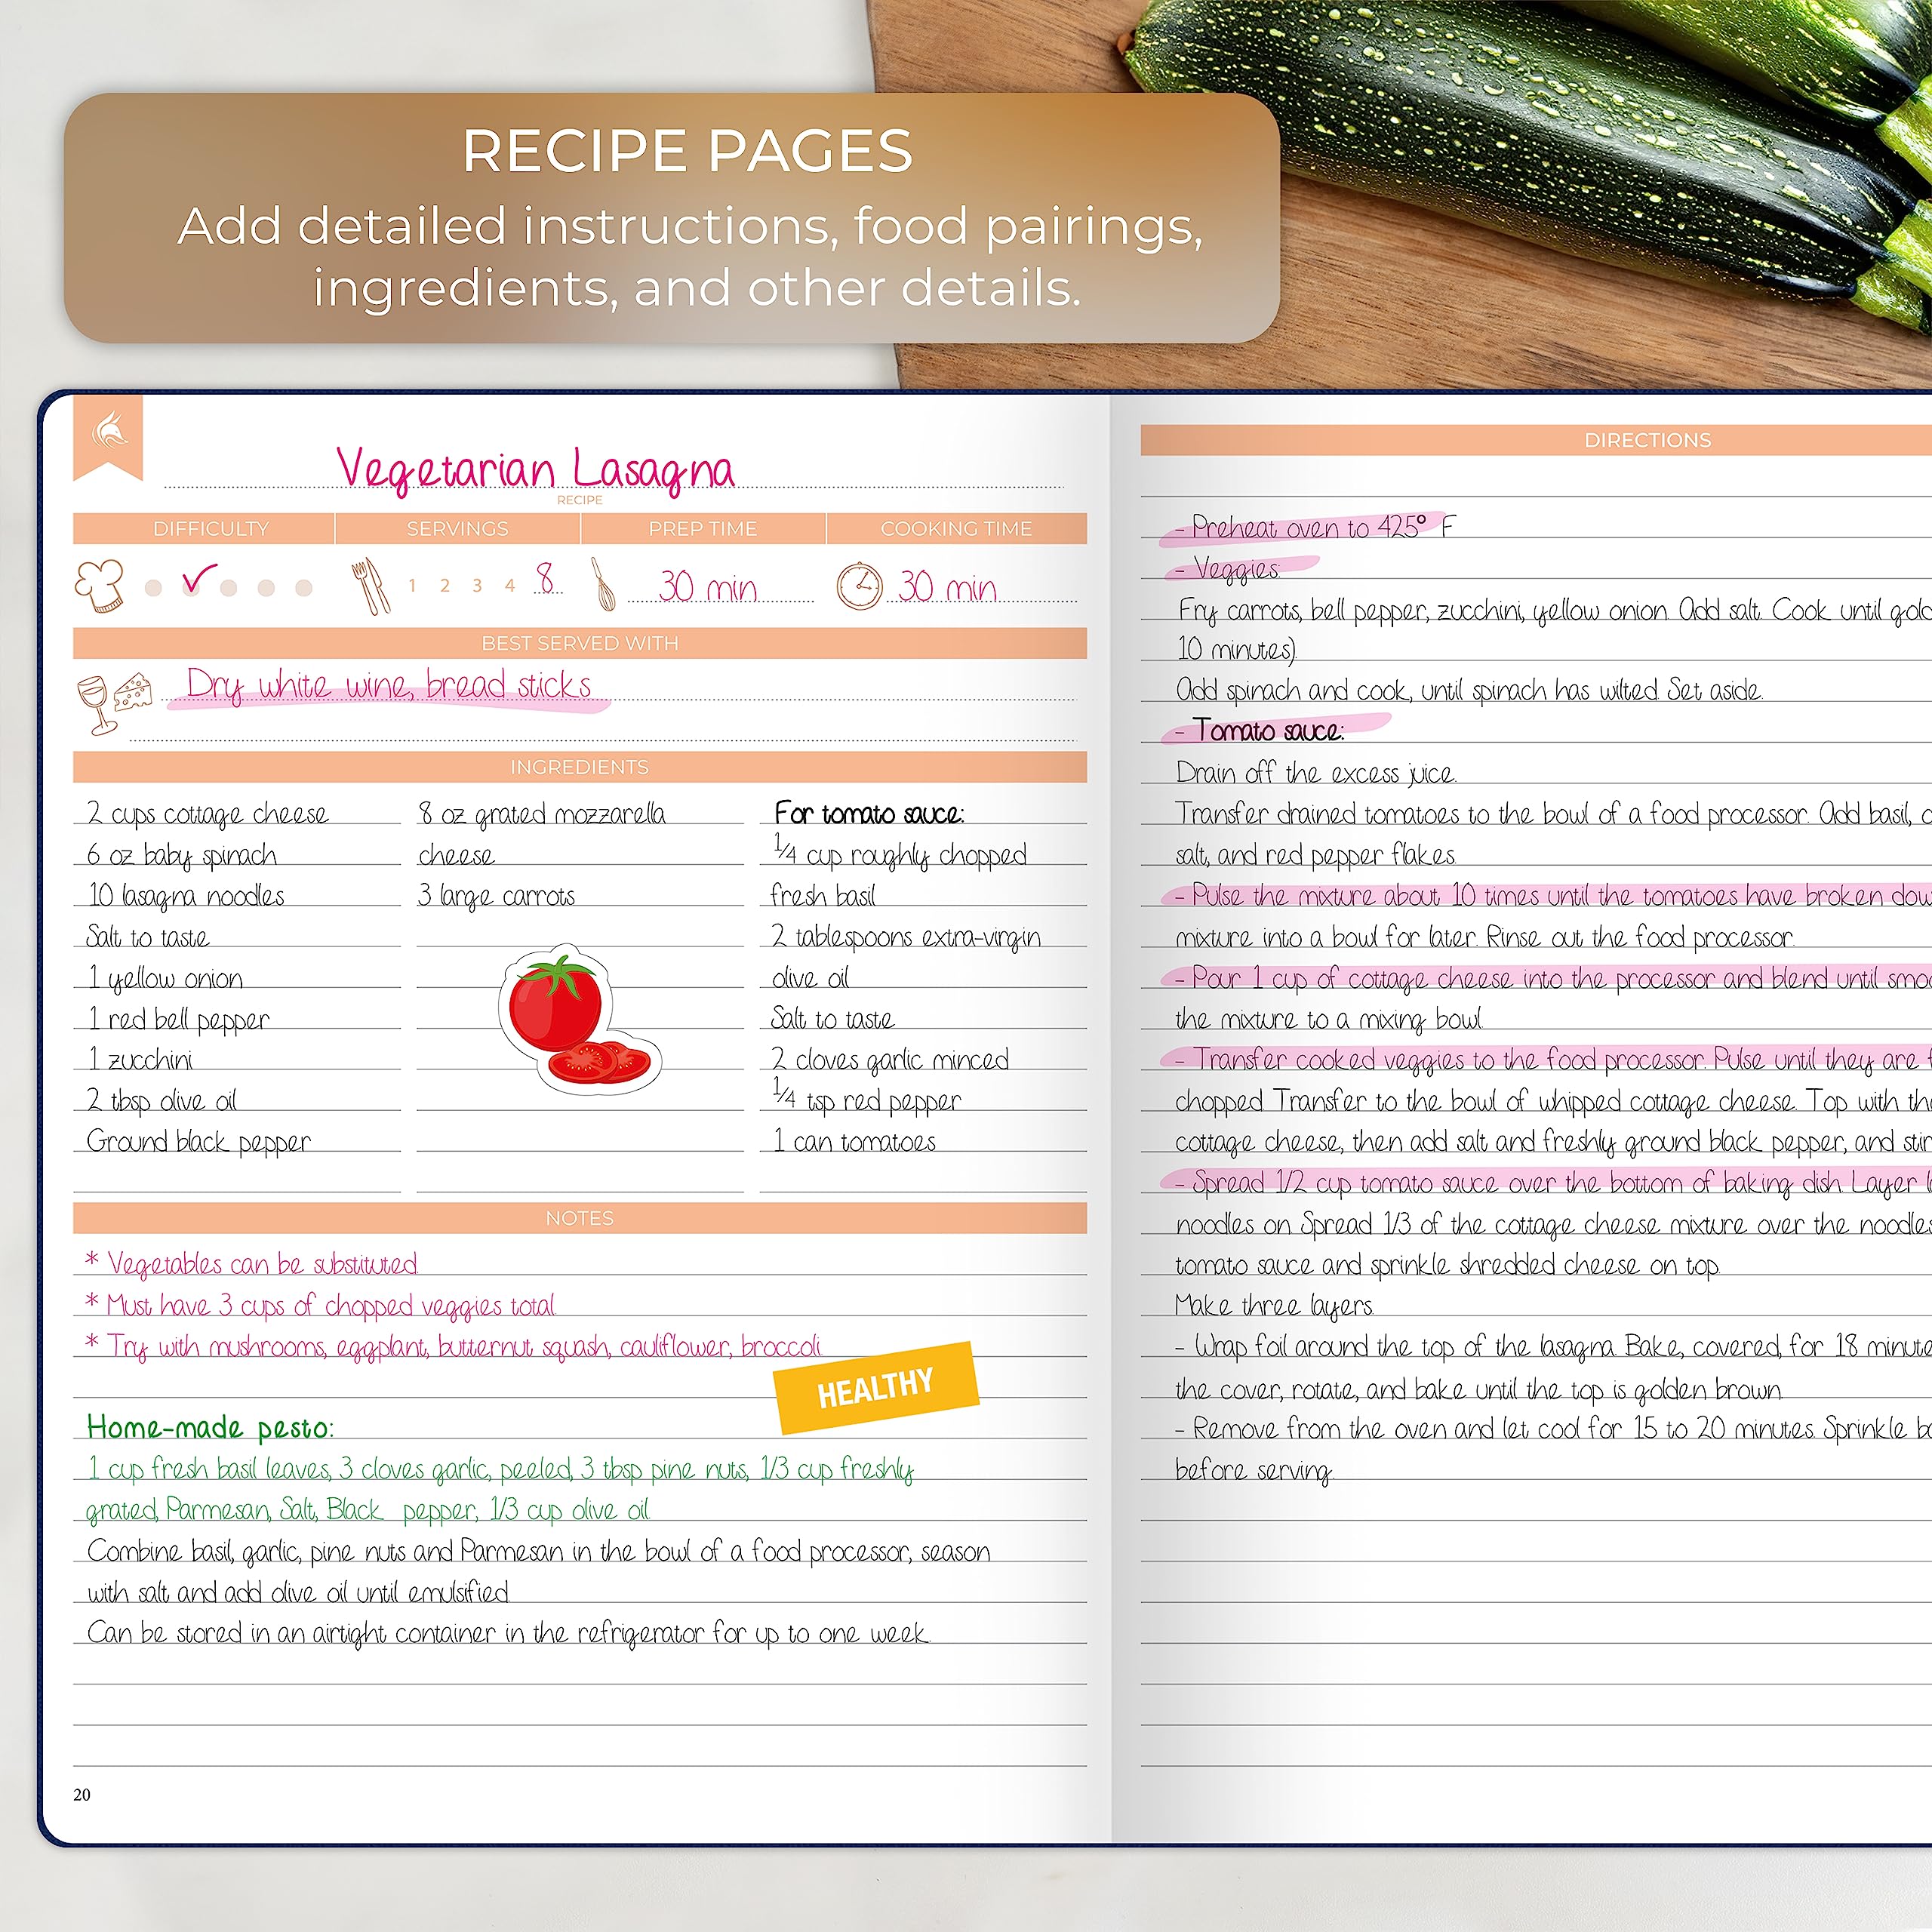 RECIPE PAGES
Add detailed instructions, food pairings,
ingredients, and other details.
Vegetarian Lasagna
RECIPE
DIFFICULTY SERVINGS PREP TIME COOKING TIME
1 2 3 4 8 30 min 30 min
BEST SERVED WITH
Dry white wine, bread sticks
INGREDIENTS
2 cups cottage cheese
6 oz baby spinach
10 lasagna noodles
Salt to taste
1 yellow onion
1 red bell pepper
1 zucchini
2 tbsp olive oil
Ground black pepper
8 oz grated mozzarella
cheese
3 large carrots
For tomato sauce:
1/4 cup roughly chopped
fresh basil
2 tablespoons extra-virgin
olive oil
Salt to taste
2 cloves garlic minced
1/4 tsp red pepper
1 can tomatoes
NOTES
* Vegetables can be substituted.
* Must have 3 cups of chopped veggies total.
* Try with mushrooms, eggplant, butternut squash, cauliflower, broccoli.
HEALTHY
Home-made pesto:
1 cup fresh basil leaves, 3 cloves garlic, peeled, 3 tbsp pine nuts, 1/3 cup freshly
grated, Parmesan, Salt, Black pepper, 1/3 cup olive oil.
Combine basil, garlic, pine nuts and Parmesan in the bowl of a food processor, season
with salt and add olive oil until emulsified.
Can be stored in an airtight container in the refrigerator for up to one week.
20
DIRECTIONS
- Preheat oven to 425° F
- Veggies:
Fry carrots, bell pepper, zucchini, yellow onion. Add salt. Cook until
10 minutes).
Add spinach and cook, until spinach has wilted. Set aside.
- Tomato sauce:
Drain off the excess juice.
Transfer drained tomatoes to the bowl of a food processor. Add basil,
salt, and red pepper flakes.
- Pulse the mixture about 10 times until the tomatoes have broken
mixture into a bowl for later. Rinse out the food processor.
- Pour 1 cup of cottage cheese into the processor and blend until
the mixture to a mixing bowl.
- Transfer cooked veggies to the food processor. Pulse until they are
chopped. Transfer to the bowl of whipped cottage cheese. Top with
cottage cheese, then add salt and freshly ground black pepper, and
- Spread 1/2 cup tomato sauce over the bottom of baking dish. Layer
noodles on. Spread 1/3 of the cottage cheese mixture over the
tomato sauce and sprinkle shredded cheese on top.
Make three layers.
- Wrap foil around the top of the lasagna. Bake, covered, for 18
the cover, rotate, and bake until the top is golden brown.
- Remove from the oven and let cool for 15 to 20 minutes. Sprinkle
before serving.